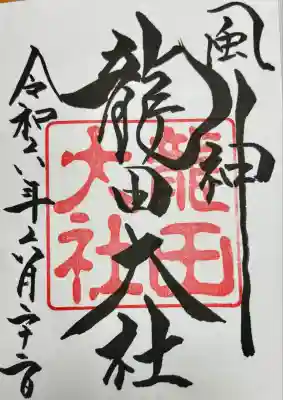 風神
龍田大社
龍田大社
令和六年六月二十二日